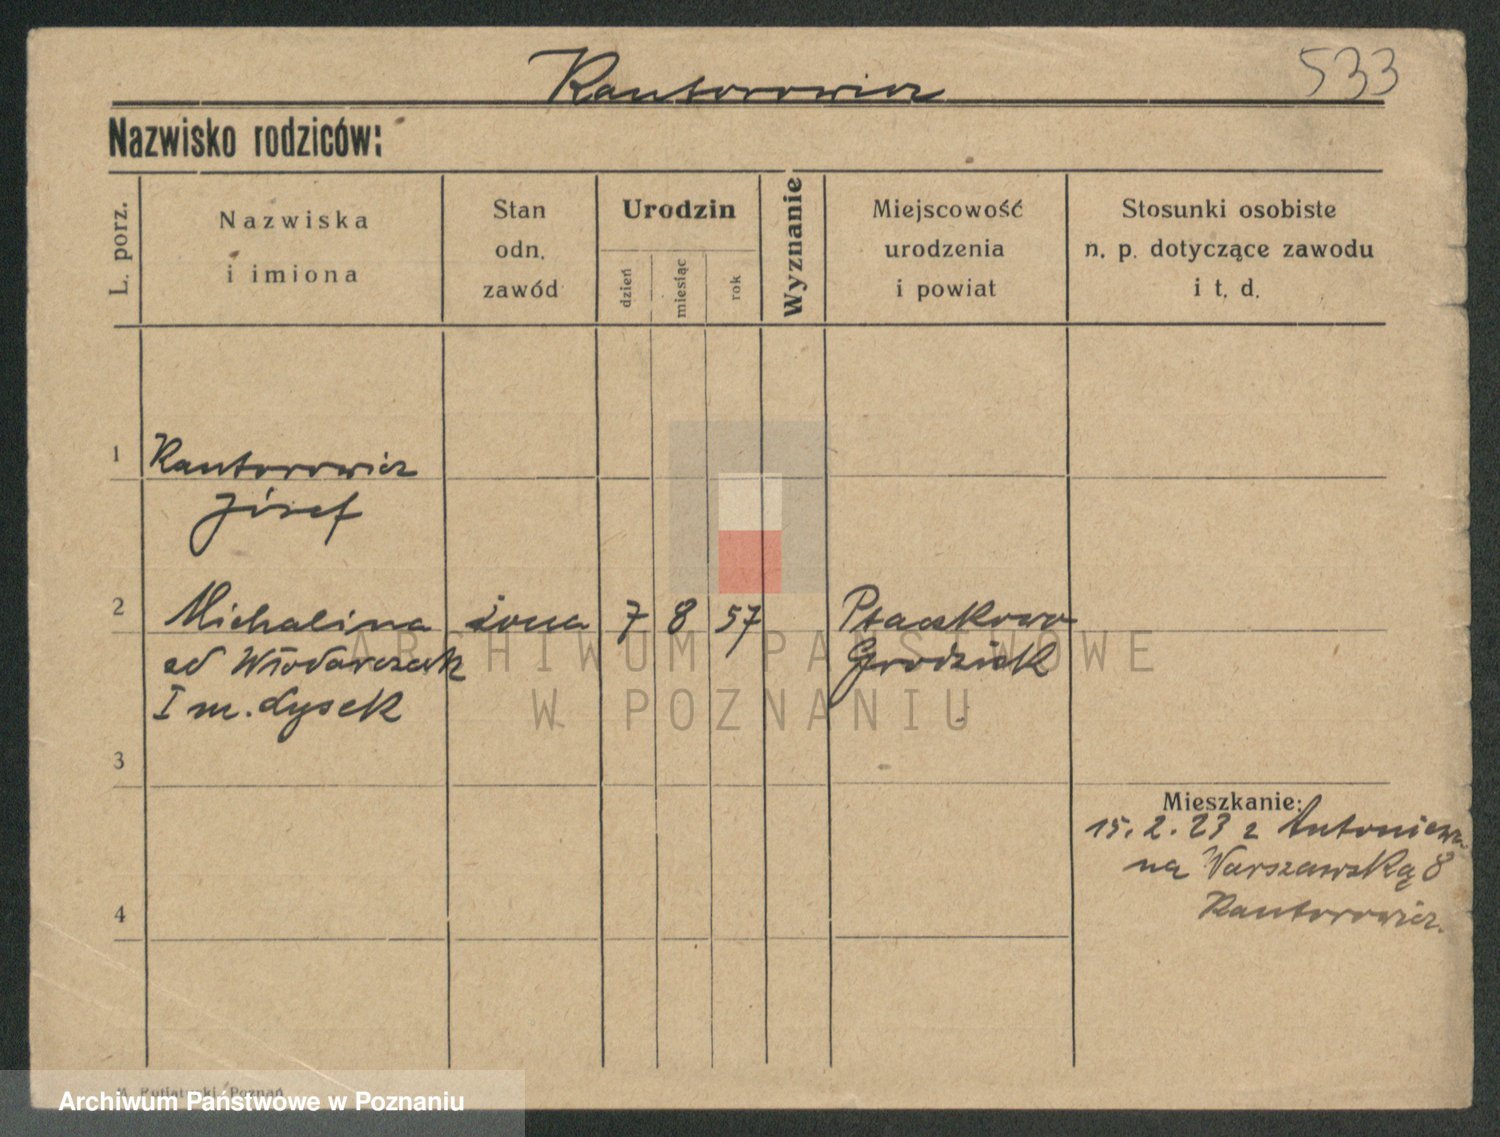 Kantorowicz
533
Nazwisko rodziców:
L. porz.
Nazwiska
i imiona
Stan
odn.
zawód
Urodzin
dzień
miesiąc
rok
Wyznanie
Miejscowość
urodzenia
i powiat
Stosunki osobiste
n. p. dotyczące zawodu
i t. d.
1 Kantorowicz
Józef
2 Michalina żona 7 8 57 Ptaszkowo
od Włodarczak Grodzisk
I m. Łysek
3
Mieszkanie:
15. 2. 23 z Antoniewa
na Warszawską 8
Kantorowicz.
4
ARCHIWUM PAŃSTWOWE
W POZNANIU
Poznań
Archiwum Państwowe w Poznaniu